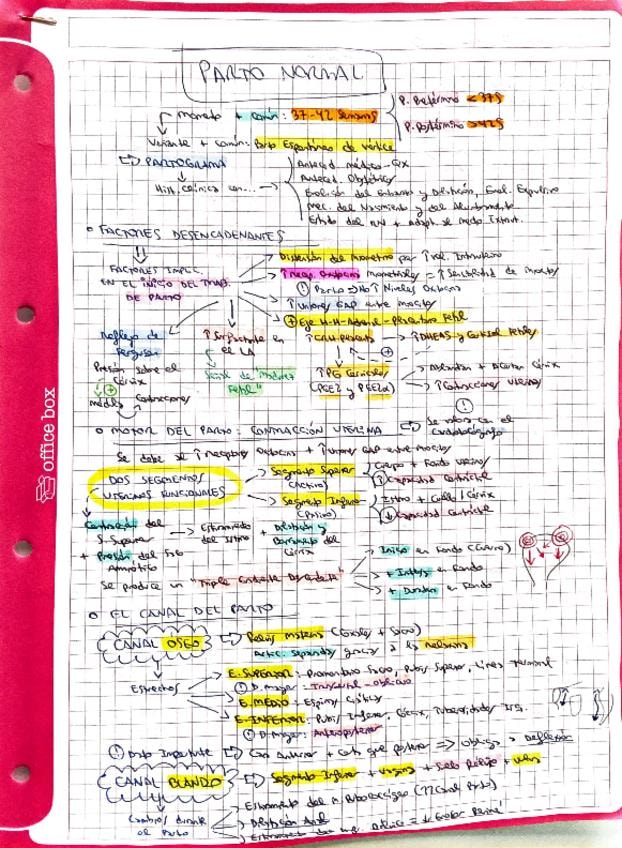 PARTO NORMAL
momento + común: 37-42 Semanas
P. Pretérmino < 37S
P. Postérmino > 42S
Variante + común: Parto Espontáneo de vértice
PARTOGRAMA
Hist. Clínica con...
Anteced. médico-Qx
Anteced. Obstétricos
Mec. del Nacimiento y del Alumbramiento
Estado del RN + adapt. al medio Extraut.
FACTORES DESENCADENANTES
FACTORES IMPLIC.
EN EL INICIO DEL TRAB.
DE PARTO
Distensión del miometrio por ↑ vol. Intrauterino
↑ Recep. Oxitocina miometriales = ↑ Sensibilidad de miocitos
Parto → No ↑ Niveles Oxitocina
↑ Uniones GAP entre miocitos
Eje H-H-Adrenal-Placentario Fetal
Reflejo de
Ferguson
↑ Surfactante en
el LA
↑ CRH placenta → ↑ DHEAS y Cortisol Fetales
Presión sobre el
Cérvix
Señal de "madurez
Fetal"
↑ PG Cervicales
(PGE2 y PGF2α)
Ablandan + Dilatan Cérvix
↑ Contracciones Uterinas
médula
Contracciones
MOTOR DEL PARTO: CONTRACCIÓN UTERINA
Se valora con el
Cardiotocógrafo
Se debe al ↑ Receptores Oxitocina + ↑ Uniones GAP entre miocitos
DOS SEGMENTOS
UTERINOS FUNCIONALES
Segmento Superior
(Activo)
Cuerpo + Fondo Uterino
↑ Capacidad Contráctil
Segmento Inferior
(Pasivo)
Istmo + Cuello / Cérvix
↓ Capacidad Contráctil
Contracción del
S. Superior
+ Presión del Saco
Amniótico
Estiramiento
del Istmo
+ Dilatación y
Borramiento del
Cérvix
Se produce un "Triple Gradiente Descendente"
Inicio en Fondo (Cuerno)
+ Intensa en Fondo
+ Duradera en Fondo
EL CANAL DEL PARTO
CANAL ÓSEO
Pelvis materna (Coxales + Sacro)
Artic. Separadas gracias a la relaxina
Estrechos
E. SUPERIOR: Promontorio Sacro, Pubis Superior, Línea Terminal
D. mayor: Transversal-oblicuo
E. MEDIO: Espinas Ciáticas
E. INFERIOR: Pubis Inferior, Cóccix, Tuberosidades Isq.
D. mayor: Anteroposterior
Dato Importante
Cara anterior + corta que posterior ⇒ obliga a Deflexión
CANAL BLANDO
Segmento Inferior + vagina + Suelo Pélvico + vulva
Cambios durante
el Parto
office box